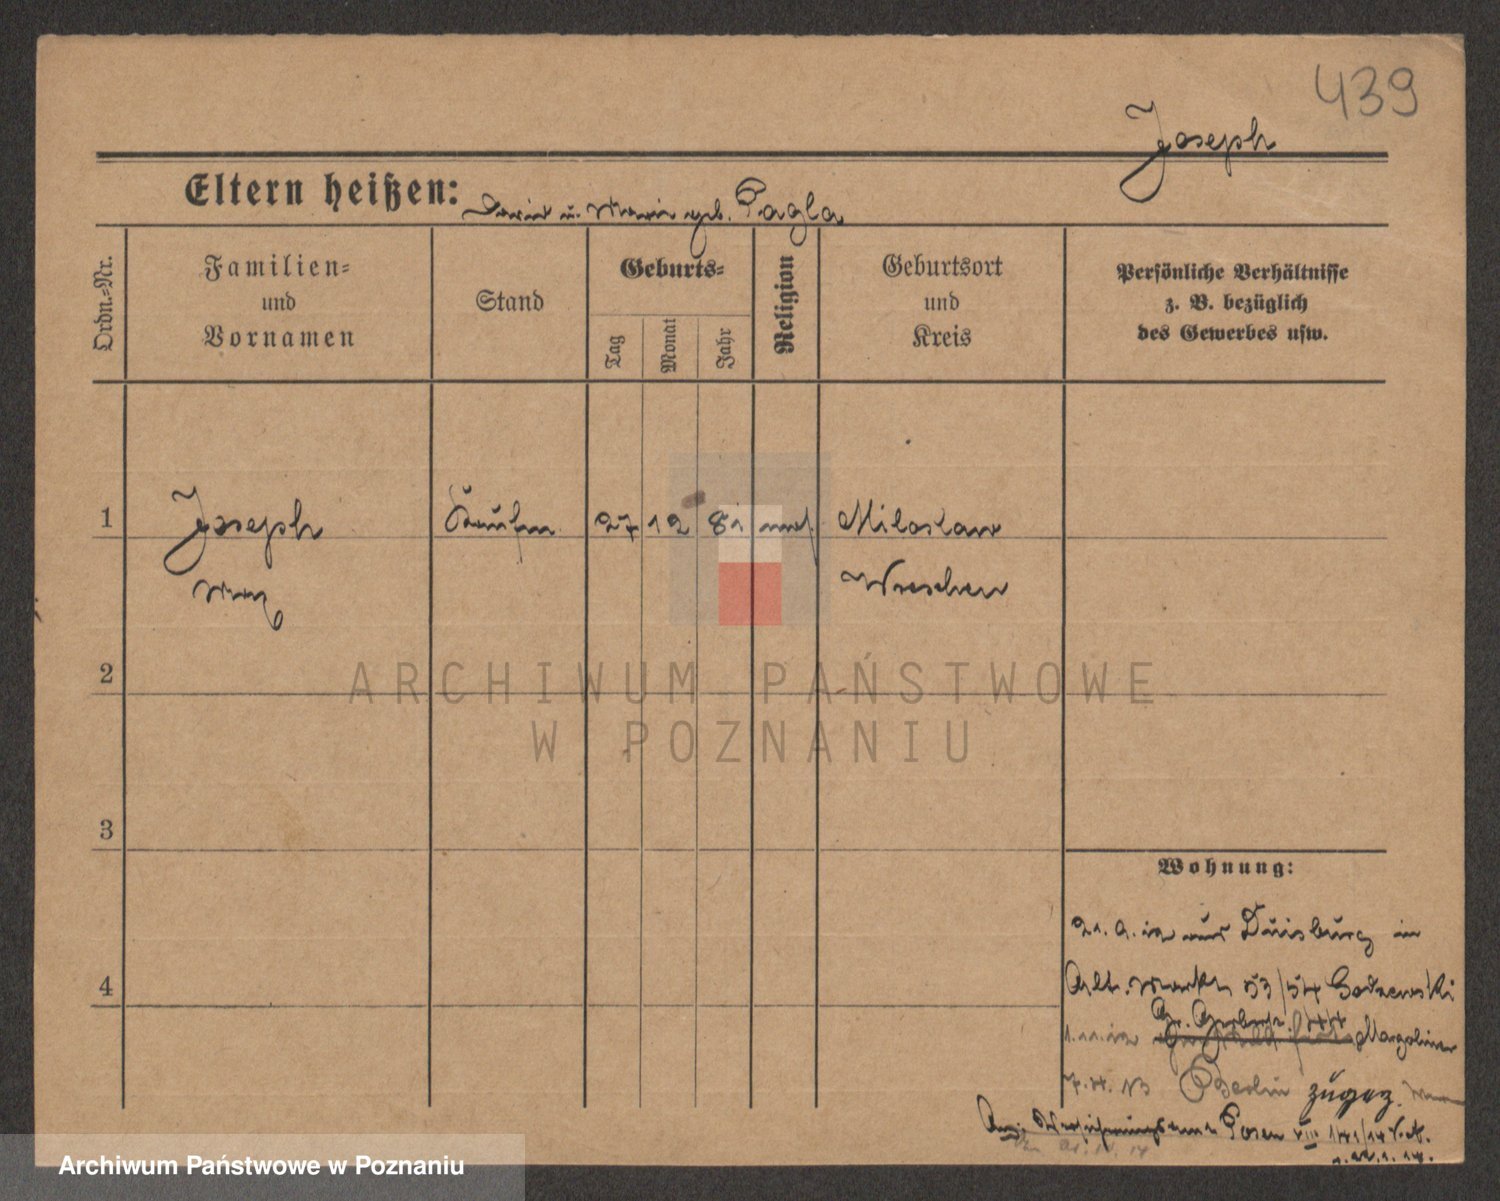 439
Joseph
Eltern heißen: David u. Marie geb. Pagla
Ordn.-Nr.
Familien-
und
Vornamen
Stand
Geburts-
Tag
Monat
Jahr
Religion
Geburtsort
und
Kreis
Persönliche Verhältnisse
z. B. bezüglich
des Gewerbes usw.
1 Joseph Kaufm 27 12 81 mos Miloslaw
Max Wreschen
2
3
4
Wohnung:
21. 9. 12 aus Duisburg in
Alt. Markt 53/54
Gr. Gerberstr.
1. 11. 12 Margoliner
7. 4. 13 Berlin zugez.
Posen VIII
ARCHIWUM PAŃSTWOWE
W POZNANIU
Archiwum Państwowe w Poznaniu